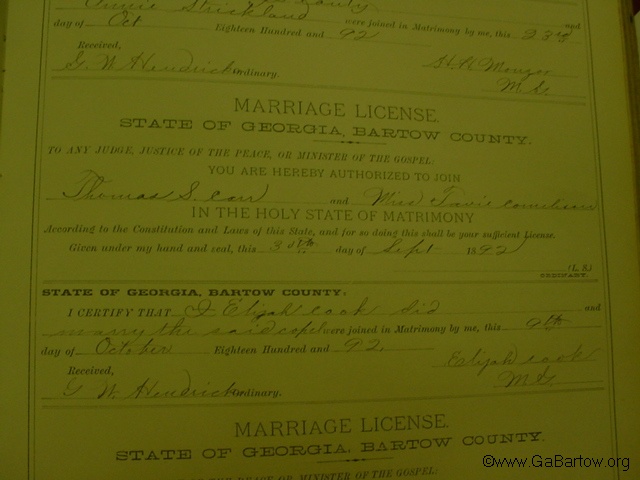 Annie Strickland and
were joined in Matrimony by me, this 23rd
day of Oct Eighteen Hundred and 92
Received,
G. W. Hendricks Ordinary.
M. G.
MARRIAGE LICENSE.
STATE OF GEORGIA, BARTOW COUNTY.
TO ANY JUDGE, JUSTICE OF THE PEACE, OR MINISTER OF THE GOSPEL:
YOU ARE HEREBY AUTHORIZED TO JOIN
Thomas S. Carr and Miss
IN THE HOLY STATE OF MATRIMONY
According to the Constitution and Laws of this State, and for so doing this shall be your sufficient License.
Given under my hand and seal, this 30th day of Sept 1892
(L. S.)
ORDINARY.
STATE OF GEORGIA, BARTOW COUNTY:
I CERTIFY THAT I Elijah Cook did and
marry the said copel were joined in Matrimony by me, this 9th
day of October Eighteen Hundred and 92.
Elijah Cook
Received,
M G.
G W. Hendricks Ordinary.
MARRIAGE LICENSE.
STATE OF GEORGIA, BARTOW COUNTY.
THE PEACE OR MINISTER OF THE GOSPEL:
©www.GaBartow.org